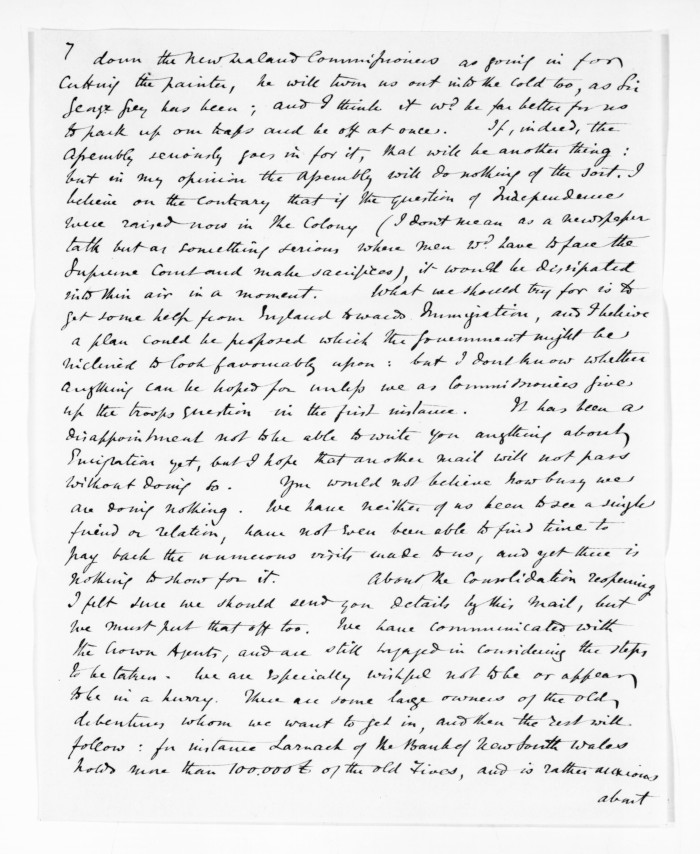 7 down the New Zealand Commissioners as going in for
cutting the painter, he will turn us out into the cold too, as Sir
George Grey has been; and I think it wd. be far better for us
to pack up our traps and be off at once. If, indeed, the
Assembly seriously goes in for it, that will be another thing:
but in my opinion the Assembly will do nothing of the sort. I
believe on the contrary that if the question of Independence
were raised now in the Colony (I don't mean as a newspaper
talk but as something serious where men wd. have to face the
Supreme Court and make sacrifices), it would be dissipated
into thin air in a moment. What we should try for is to
get some help from England towards Immigration, and I believe
a plan could be proposed which the Government might be
inclined to look favourably upon: but I don't know whether
anything can be hoped for unless we as Commissioners give
up the troops question in the first instance. It has been a
disappointment not to be able to write you anything about
Emigration yet, but I hope that another mail will not pass
without doing so. You would not believe how busy we
are doing nothing. We have neither of us been to see a single
friend or relation, have not even been able to find time to
pay back the numerous visits made to us, and yet there is
nothing to show for it. About the Consolidation reopening
I felt sure we should send you details by this mail, but
we must put that off too. We have communicated with
the Crown Agents, and are still engaged in considering the steps
to be taken. We are especially wishful not to be or appear
to be in a hurry. There are some large owners of the old
debentures whom we want to get in, and then the rest will
follow: for instance Larnach of the Bank of New South Wales
holds more than 100.000£ of the old Fives, and is rather anxious
about